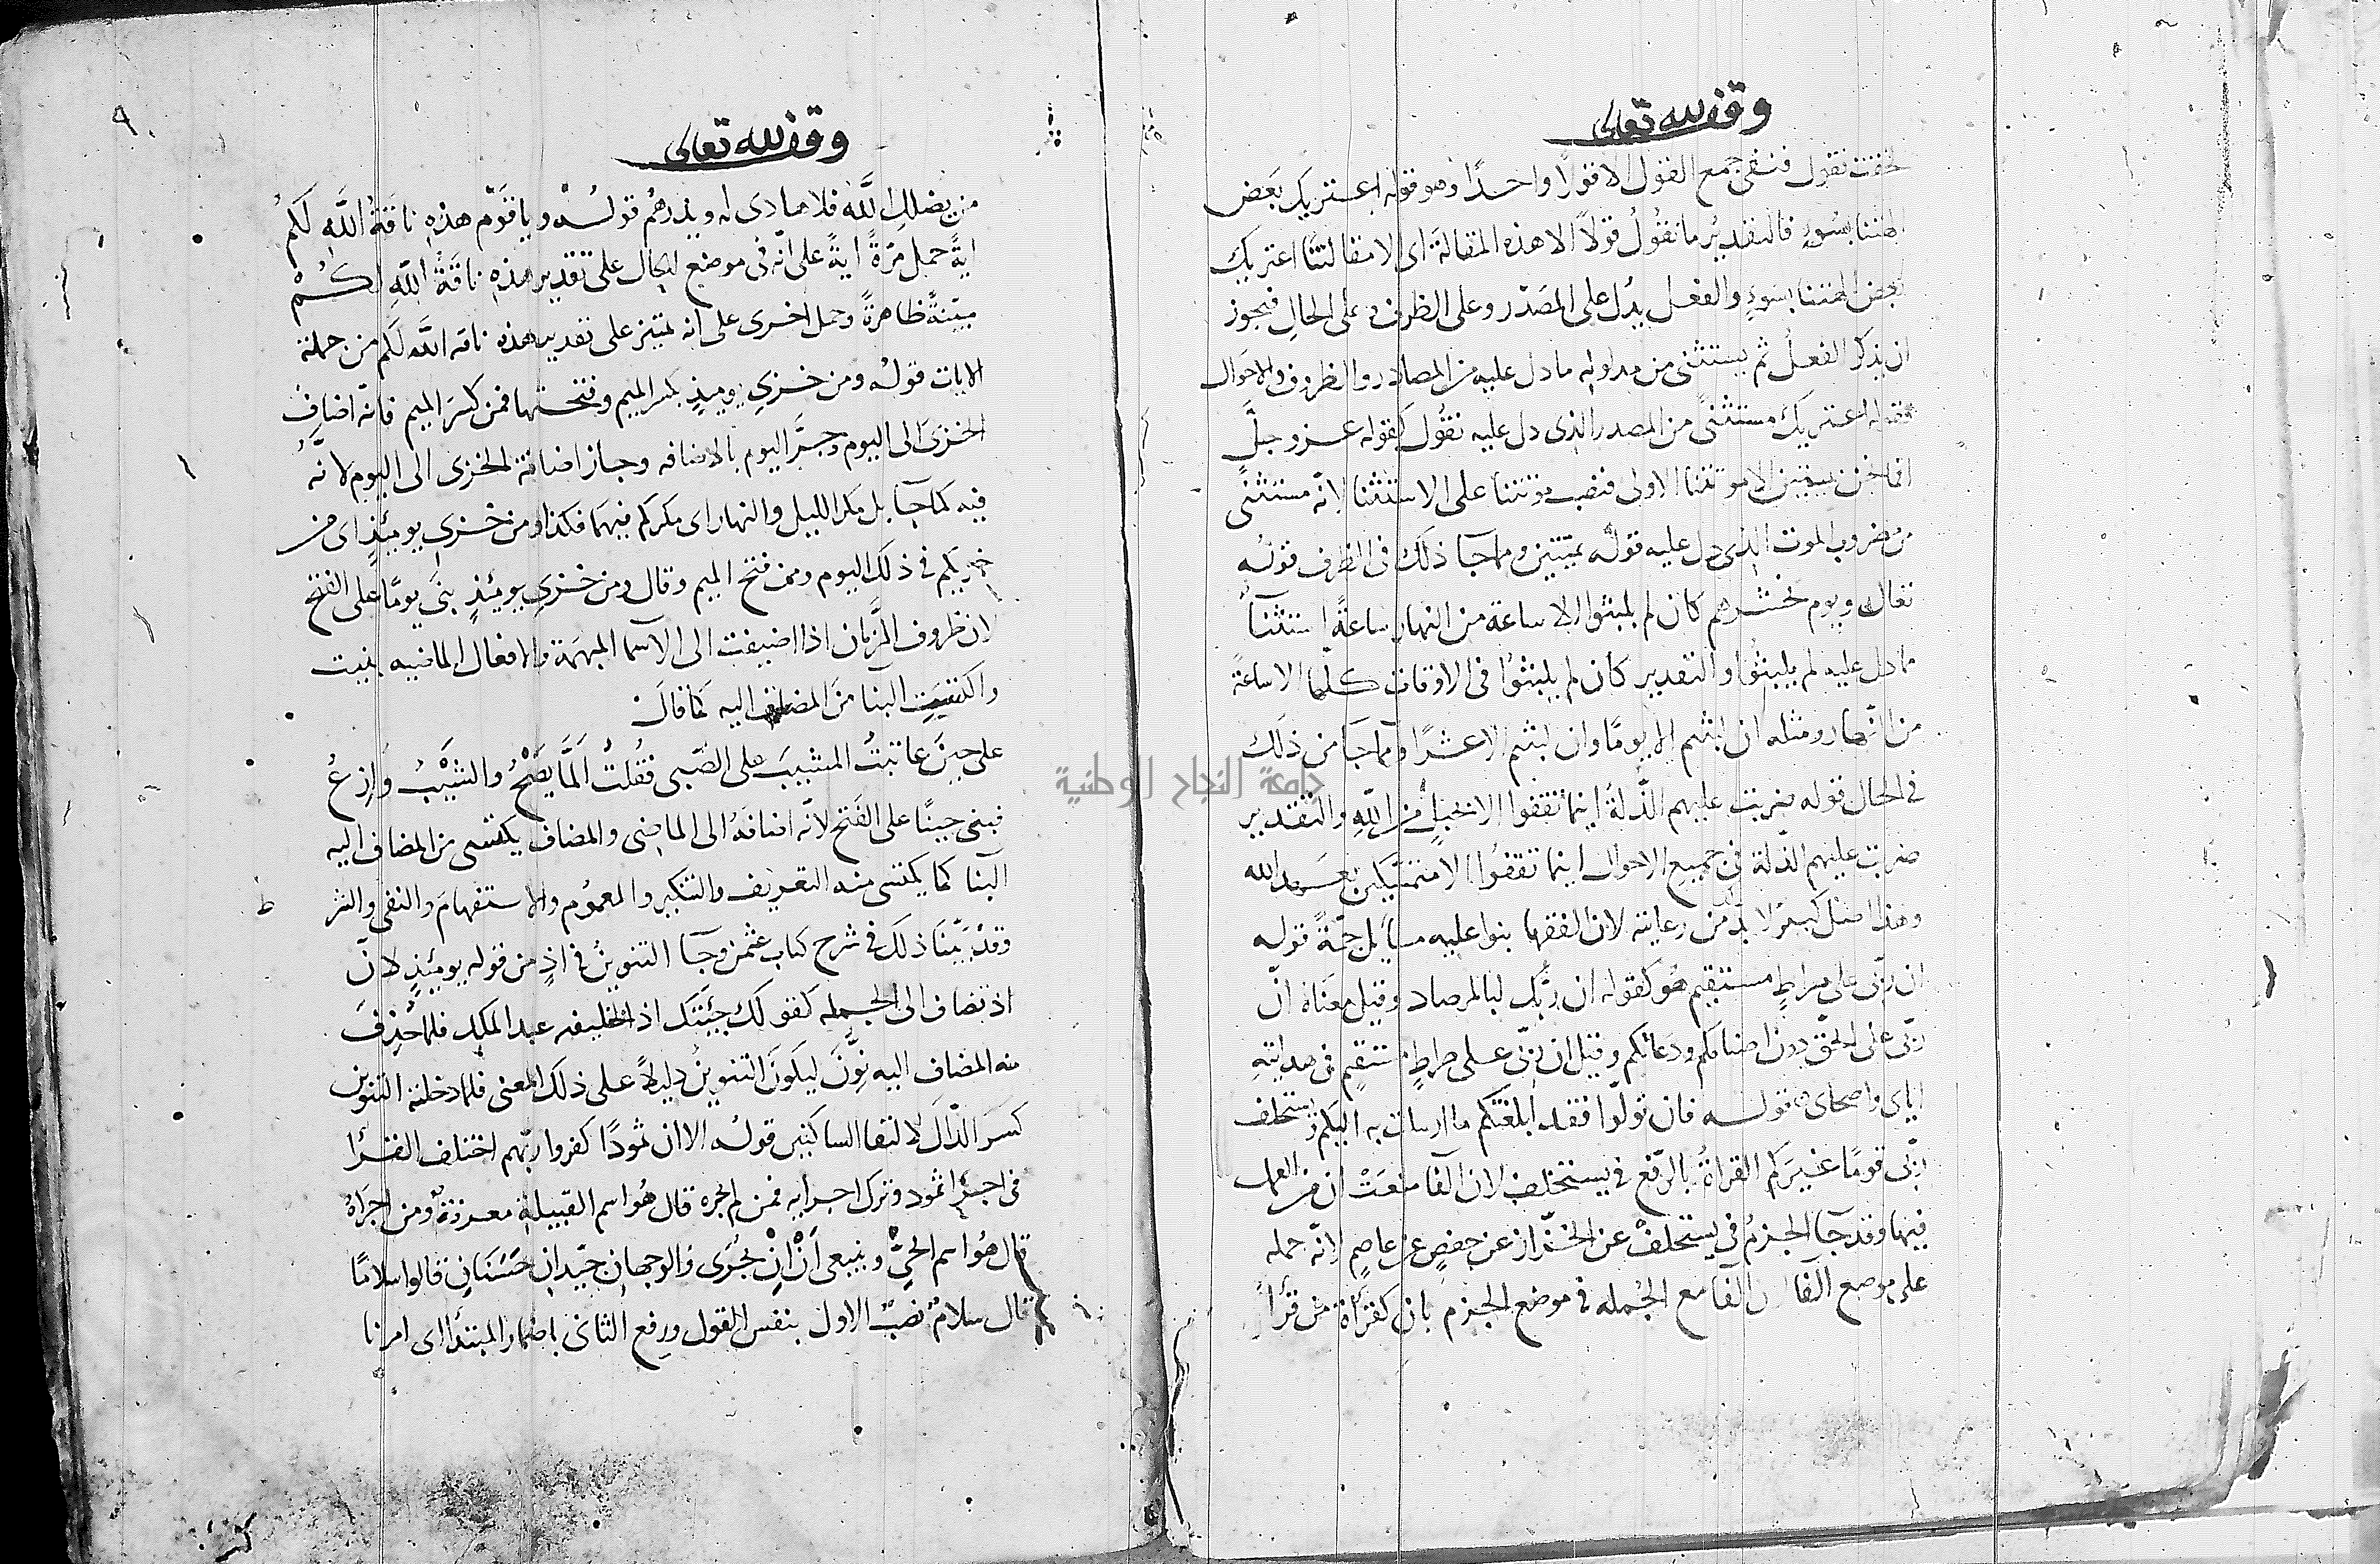 وقف لله تعالى
نقول فنفى جمع القول الا قولا واحدًا وهو قوله اعتريك بعض
الهتنا بسوءٍ فالتقديرُ ما نقُولُ قولاً الا هذه المقالة اى الا مقالتنا اعتريك
بعض الهتنا بسوءٍ والفعل يدُل على المصَدْر وعلى الظرف وعلى الحالِ فيجوز
ان يذكر الفعلُ ثم يستثنى من مدلوله ما دل عليه من المصادر والظروف والاحوال
فقوله اعتريك مستثنىً من المصدر الذى دل عليه نقُول كقوله عز وجلَّ
افما نحن بميتين الا موتتنا الاولى فنصب موتتنا على الاستثنا لانّه مستثنًى
من ضروب الموت الذى دل عليه قولُه بميّتين ومما جا ذلك فى الظرف قولُه
تعالى ويوم نحشرهم كان لم يلبثوا الا ساعة من النهار ساعةً استثناءً
ما دل عليه لم يلبثُوا والتقدير كأن لم يلبثوُا فى الاوقات كلّها الا ساعةً
من النهار ومثله ان لبثتم الا يومًا وان لبثتم الا عشرًا ومما جا من ذلك
فى الحال قوله ضربت عليهم الذّلةُ اينما ثقفوا الا بحبلٍ من اللهِ والتقدير
ضربت عليهم الذّلة فى جميع الاحوال اينما ثقفُوا الا متمسّكين بعهد الله
وهذا اصل كبير لا بدّ من رعايته لان الفقها بنوا عليه مسايل جمّةً قوله
ان ربّى على صراطٍ مستقيم هُو كقوله ان ربّك لبالمرصاد وقيل معَناهُ انّ
ربّى على الحق دون اصنامكم ودعائكم وقيل ان ربّى على صراطٍ مستقيم فى هدايتهِ
اياى واصحابى قوله فان تولّوا فقد ابلغتكم ما ارسلت به اليكم ويستخلف
ربّى قومًا غيرَكم القراةُ بالرّفع فى يستخلف لان الفا منعَتْ ان من العمل
فيها وقد جآ الجزمُ فى يستخلفْ عن الخزّاز عن حفصٍ عن عاصمٍ لانّه حمله
على موضع الفا لان الفا مع الجُمله فى موضع الجزم بان كقرأة من قرأ
وقف لله تعالى
من يضلل اللَّه فلا هادى له ويذرهُم قولُه ويا قَوْم هذهِ ناقَةُ اللَّهِ لَكمُ
ايةً حمل مَرّةً ايةً على انّه فى موضع الحال على تقدير هذهِ ناقَةُ اللّهِ لكُمْ
مبيّنةً ظاهرةً وحمل اخرى على انه تمييز على تقدير هذه ناقه اللَّه لكم من جملة
الايات قولُه ومن خزىِ يوميذٍ بكسر الميم وفتحتها فمن كسَر الميم فانّه اضاف
الخزى الى اليوم وجرَّ اليوم بالاضافه وجاز اضافة الخزى الى اليوم لانَّهُ
فيه كما جآ بل مكر الليل والنهار اى مكركم فيهما فكذا ومن خزىِ يومئِذٍ اى من
خزيكم فى ذلك اليوم ومن فتح الميم وقال ومن خزى يومئِذٍ بنَى يومًا على الفتح
لان ظروف الزَّمان اذا اضيفت الى الاسما المبهَمة والافعال الماضيه بنيت
واكتسبت البنا من المضاف اليه كما قال
على حِينَ عاتبتُ المشيبَ على الصّبى فقُلتُ اَلَمَّا يَصْحُ والشَيْبُ وازِعُ
فبنى حينًا على الفَتح لانّه اضافهُ الى الماضى والمضاف يكتسى من المضاف اليه
البنا كما يكتسى منه التعريف والتنكير والعمُوم والاستفهامَ والنفى والشر
وقد بيّنا ذلك فى شرح كتاب عثمن وجآ التنوينُ فى اذٍ من قوله يومئِذٍ لانّ
اذ تضاف الى الجمله كقولك جيئتك اذ الخليفه عبد الملك فلما حُذِفَ
منه المضاف اليه نوِّنَ ليكونَ التنوينُ دليلاً على ذلك المعنى فلما دخلته التنوين
كسَر الذّالَ لالتقا الساكنين قولُه الا ان ثمودًا كفروا ربّهم اختلف القُرا
فى اجرآ ثمود وترك اجرايه فمن لم يجره قال هُو اسم القبيلة معرفةٌ ومن اجرَاهُ
قال هُو اسم الحىِّ وينبغى اَنْ يُجْرَى والوجهانِ جيّدانِ حَسَنانِ قالوا سلامًا
قال سلامٌ نصبُ الاول بنفس القول ورفع الثانى باضمار المبتدأ اى امرنا
جامعة النجاح الوطنية